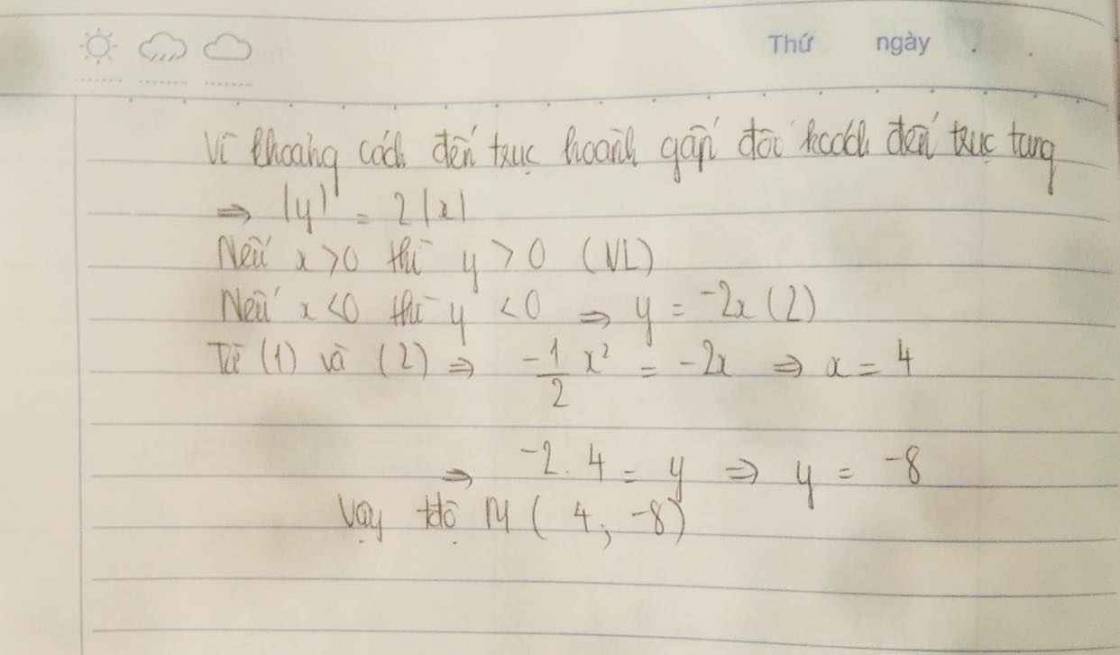 Thứ ngày
Vì khoảng cách đến trục hoành gấp đôi kcách đến trục tung
⇒ |y| = 2|x|
Nếu x > 0 thì y > 0 (VL)
Nếu x < 0 thì y < 0 ⇒ y = -2x (2)
Từ (1) và (2) ⇒ -1/2 x² = -2x ⇒ x = 4
⇒ -2.4 = y ⇒ y = -8
Vậy tđộ M ( 4; -8)